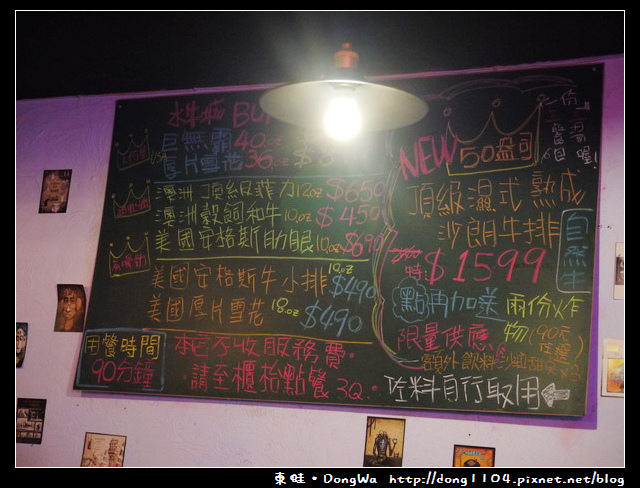 水牛城 BU
巨無霸 40oz
厚片雪花 36oz
澳洲 頂級菲力 12oz $650
澳洲穀飼和牛 10oz $450
美國安格斯肋眼 10oz $690
美國安格斯牛小排 10oz $490
美國厚片雪花 18oz $490
用餐時間
90分鐘
本店不收服務費.
請至櫃枱點餐 3Q.
NEW 50盎司
頂級濕式熟成
沙朗牛排
自然牛
特: $1599
點再加送 兩份炸物
(90元任選)
限量供應
額外飲料沙拉甜
佐料自行取用
東旺・DongWa http://dong1104.pixnet.net/blog